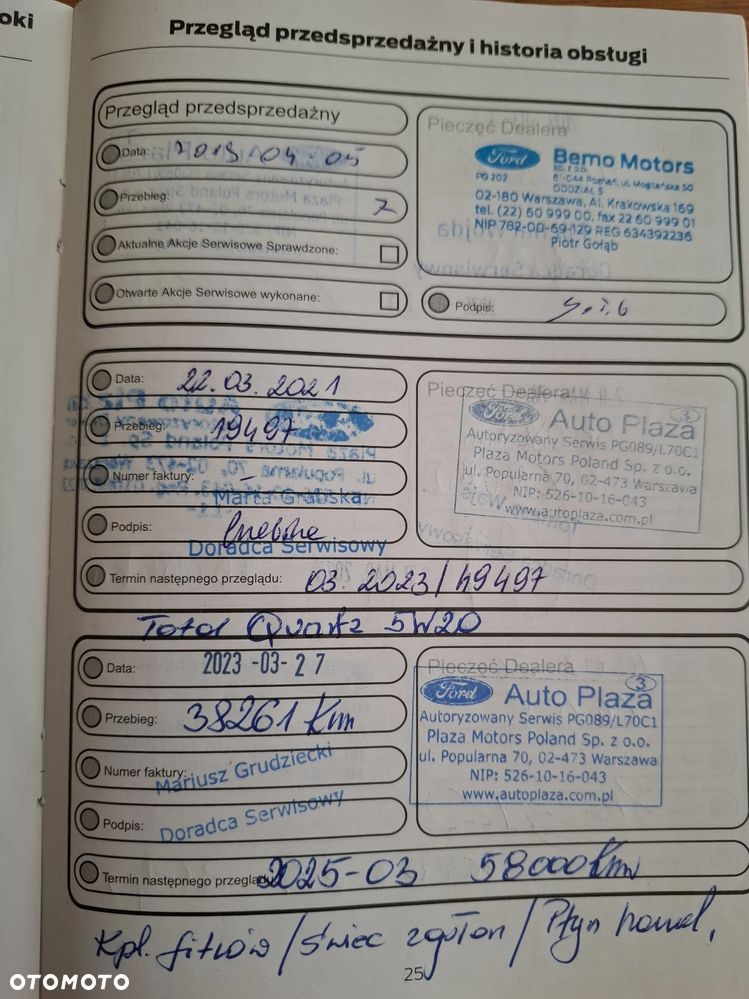 oki
Przegląd przedsprzedażny i historia obsługi
Przegląd przedsprzedażny
Data: 2019-04-05
Przebieg: 7
Aktualne Akcje Serwisowe Sprawdzone:
Otwarte Akcje Serwisowe wykonane:
Pieczęć Dealera
Ford
Bemo Motors
SP. Z O.O.
PG 202
61-044 Poznań, ul. Mogileńska 50
ODDZIAŁ 5
02-180 Warszawa, Al. Krakowska 169
tel. (22) 60 999 00, fax 22 60 999 01
NIP 782-00-69-129 REG 634392236
Piotr Gołąb
Podpis:
Data: 22.03.2021
Przebieg: 19497
Numer faktury: -
Marta Grabska
Podpis:
Doradca Serwisowy
Termin następnego przeglądu: 03.2023/49497
Pieczęć Dealera
3
Ford Auto Plaza
Autoryzowany Serwis PG089/L70C1
Plaza Motors Poland Sp. z o.o.
ul. Popularna 70, 02-473 Warszawa
NIP: 526-10-16-043
www.autoplaza.com.pl
Total Quartz 5W20
Data: 2023-03-27
Przebieg: 38261 km
Numer faktury:
Mariusz Grudziecki
Podpis:
Doradca Serwisowy
Termin następnego przeglądu: 2025-03 58000 km
Pieczęć Dealera
3
Ford Auto Plaza
Autoryzowany Serwis PG089/L70C1
Plaza Motors Poland Sp. z o.o.
ul. Popularna 70, 02-473 Warszawa
NIP: 526-10-16-043
www.autoplaza.com.pl
Kpl. filtrów / świec zapłon / Płyn hamul,
25
OTOMOTO